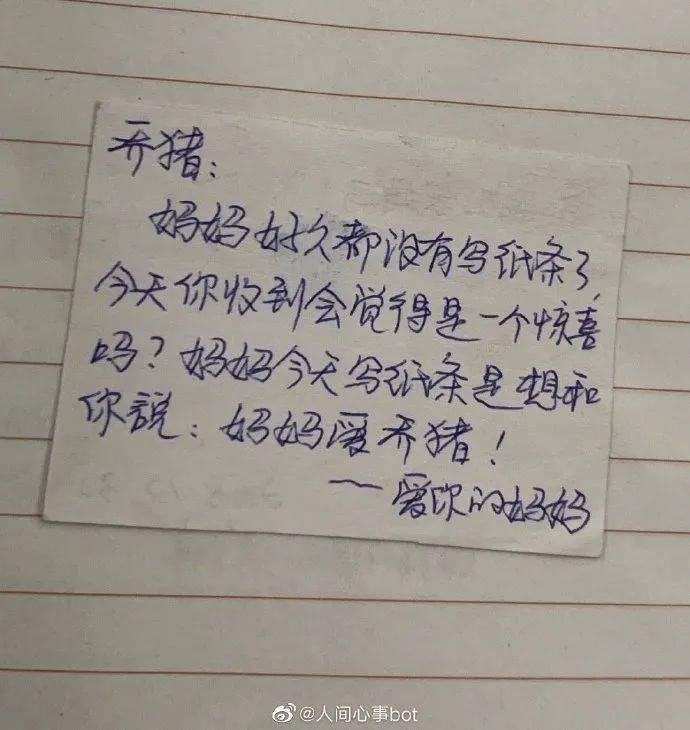 乔猪：
妈妈好久都没有写纸条了，
今天你收到会觉得是一个惊喜
吗？妈妈今天写纸条是想和
你説：妈妈爱乔猪！
——爱你的妈妈
@人间心事bot